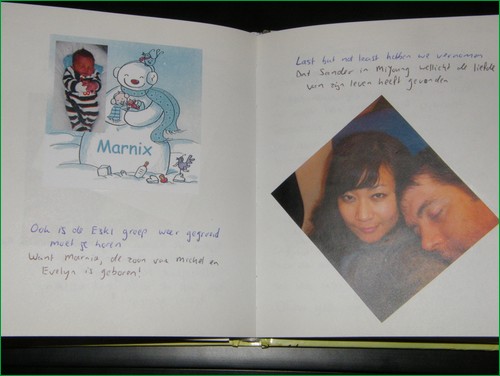 Marnix
Ook is de Eski groep weer gegroeid
moet je horen
Want Marnix, de zoon van Michel en
Evelyn is geboren!
Last but not least hebben we vernomen
Dat Sander in Miyoung wellicht de liefde
van zijn leven heeft gevonden